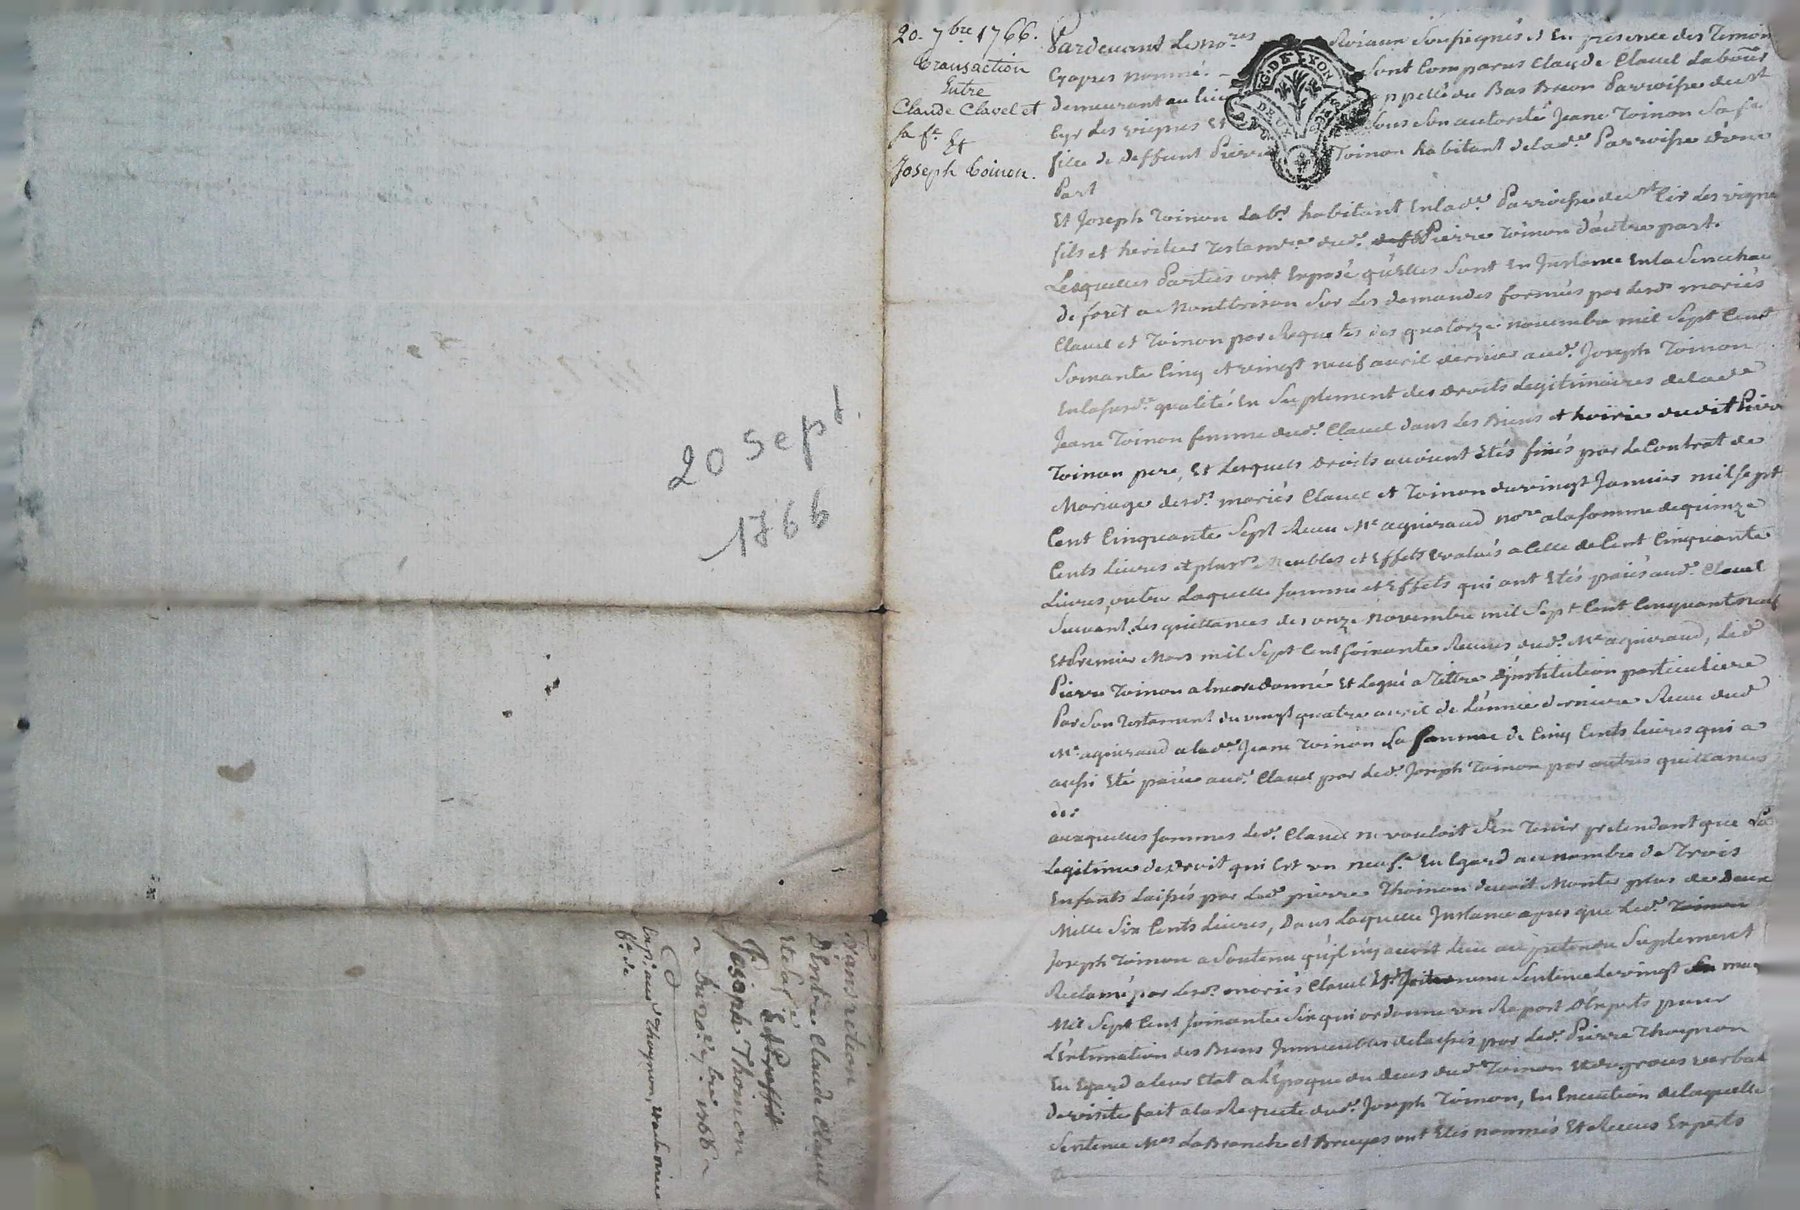 20 sep b
1766
Transaction
D'Entre Claude Clavel
et sa fe
Et Proffit
Joseph Thoinon
Du 20e 7bre 1766
20. 7bre 1766.
Transaction
Entre
Claude Clavel et
sa fe
Et
Joseph Toinon.
G. DE LYON
DEUX
Pardevant le nores Roiaux soussignés et En presence des Temoins
Cyapres nommés sont Comparus Claude Clavel Labour
demeurant au lieu appellé du Bas Breon Parroisse de St
Cyr Les vignes Et sous son autorité Jeane Toinon sa fe
fille de deffunt Pierre Toinon habitant delade Parroisse d'une
Part
Et Joseph Toinon Labr habitant Enlade Parroisse de St Cir Les vignes
fils et heritier Testamre dud. Pierre Toinon d'autre part.
Lesquelles Parties ont Exposé qu'elles sont En Instance Enla Senechau
de forêt a Montbrison sur Les demandes formées par lesd. mariés
Clavel et Toinon par Requetes des quatorze novembre mil Sept Cent
Soixante Cinq et vingt neuf avril dernier aud. Joseph Toinon
Enlasusd. qualité En Suplement des droits Legitimaires delade
Jeane Toinon femme dud. Clavel dans Les Biens et hoirie dudit Pierre
Toinon pere, Et Lesquels droits avoient Etés fixés par Le Contrat de
Mariage desd. mariés Clavel et Toinon du vingt Janvier mil sept
Cent Cinquante Sept Recu Me aguiraud nore ala somme de quinze
Cents Livres et plusrs meubles et Effets Evalués a Celle de Cent Cinquante
Livres, outre Laquelle somme et Effets qui ont Etés paiés aud. Clavel
Suivant Les quittances des onze novembre mil Sept Cent Cinquante neuf
Et Premier Mars mil Sept Cent Soixante Recues dud. Me aguiraud, Led.
Pierre Toinon a Encore donné Et Legué a Tittre d'institution particuliere
Par Son Testament du vingt quatre avril de L'année derniere Recu dud.
Me aguiraud a lade Jeane Toinon La somme de Cinq Cents Livres qui a
aussi Eté paiée aud. Clavel par Led. Joseph Toinon par autres quittances
auxquelles sommes Led. Clavel ne vouloit s'en Tenir pretendant que La
Legitime de droit qui Est un neufe Eu Egard au nombre de Trois
Enfants Laissés par Led. pierre Thoinon devoit Monter plus de Deux
Mille Six Cents Livres, Dans Laquelle Instance apres que Led. Toinon
Joseph Toinon a Soutenu qu'il n'y avoit lieu au pretendu Suplement
Reclamé par Lesd. mariés Clavel Est une Sentence Le vingt mai
Mil Sept Cent Soixante Six qui ordonne un Raport D'Experts pour
L'Estimation des Biens Immeubles delaissés par Led. Pierre Thoynon
Eu Egard a leur Etat a L'Epoque du deces dud. Toinon Et du procès verbal
de visite fait ala Requete dud. Joseph Toinon, En Execution de laquelle
Sentence Mes La Branche et Bruyas ont Etés nommés Et Recus Experts